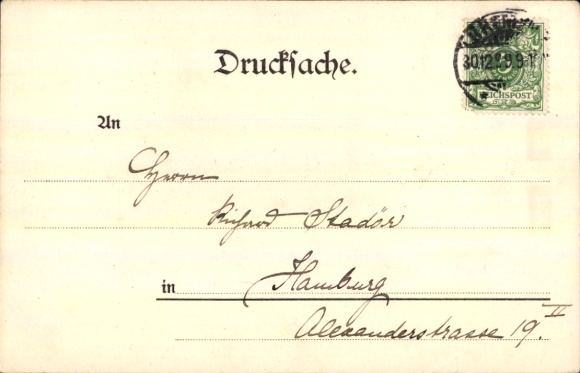 Drucksache.
30.12.
REICHSPOST
An
Herrn
Richard Stadör
in Hamburg
Alexanderstrasse 19. II